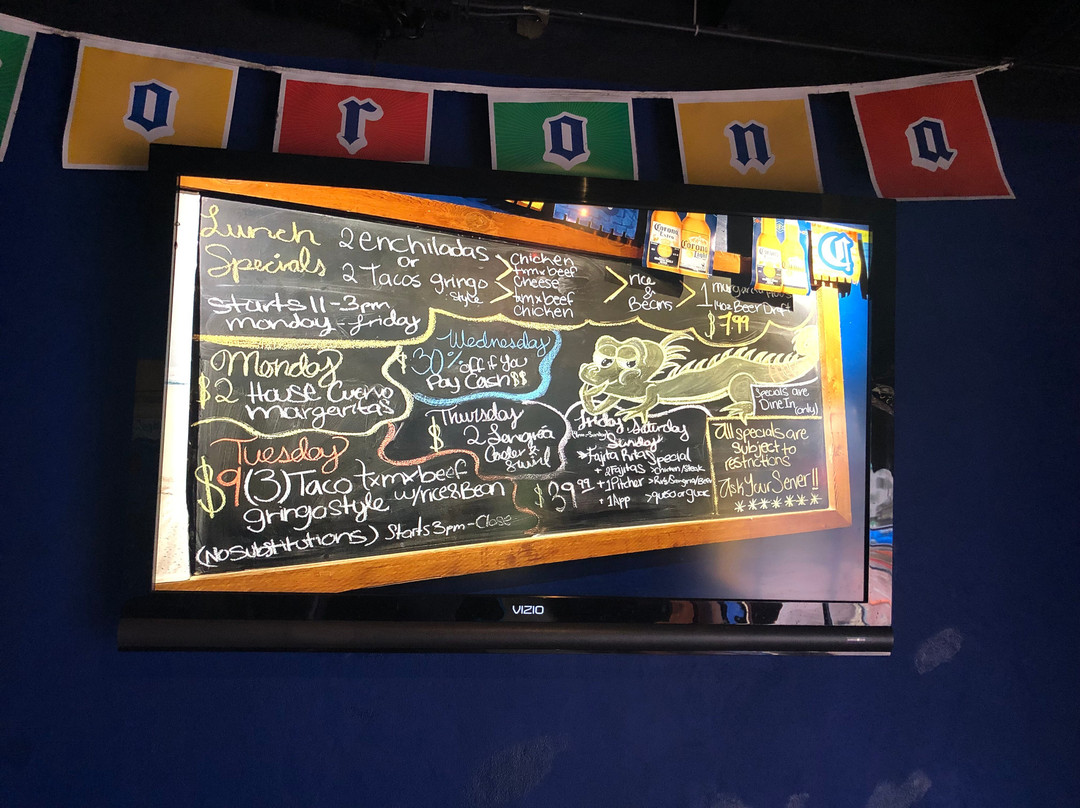 o r o n a
Lunch
Specials
Starts 11 - 3pm
monday - friday
2 enchiladas
or
2 Tacos gringo
style
Chicken
txmxbeef
Cheese
txmxbeef
chicken
rice
&
Beans
1
14oz Beer Draft
$7.99
Corona
Extra
Corona
Light
C
Monday
$2 House Cuervo
margaritas
Wednesday
30% off if you
Pay Cash $$
Thursday
$2 Sangria
Cooler &
Swirl
Tuesday
$9 (3) Taco txmxbeef
gringostyle w/rice&Bean
(No Substitutions) Starts 3pm - Close
Friday Saturday
Sunday
Fajita Ritas Special
+ 2 Fajitas >chicken/steak
+ 1 Pitcher
+ 1 App >queso or guac
$39.99
Specials are
Dine In (only)
All specials are
subject to
restrictions
Ask Your Server!!
*******
VIZIO